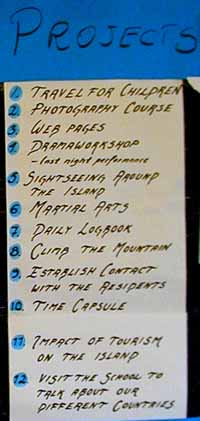 PROJECTS
1. TRAVEL FOR CHILDREN
2. PHOTOGRAPHY COURSE
3. WEB PAGES
4. DRAMAWORKSHOP
- last night performance
5. SIGHTSEEING AROUND
THE ISLAND
6. MARTIAL ARTS
7. DAILY LOGBOOK
8. CLIMB THE MOUNTAIN
9. ESTABLISH CONTACT
WITH THE RESIDENTS
10. TIME CAPSULE
11. IMPACT OF TOURISM
ON THE ISLAND
12. VISIT THE SCHOOL TO
TALK ABOUT OUR
DIFFERENT COUNTRIES